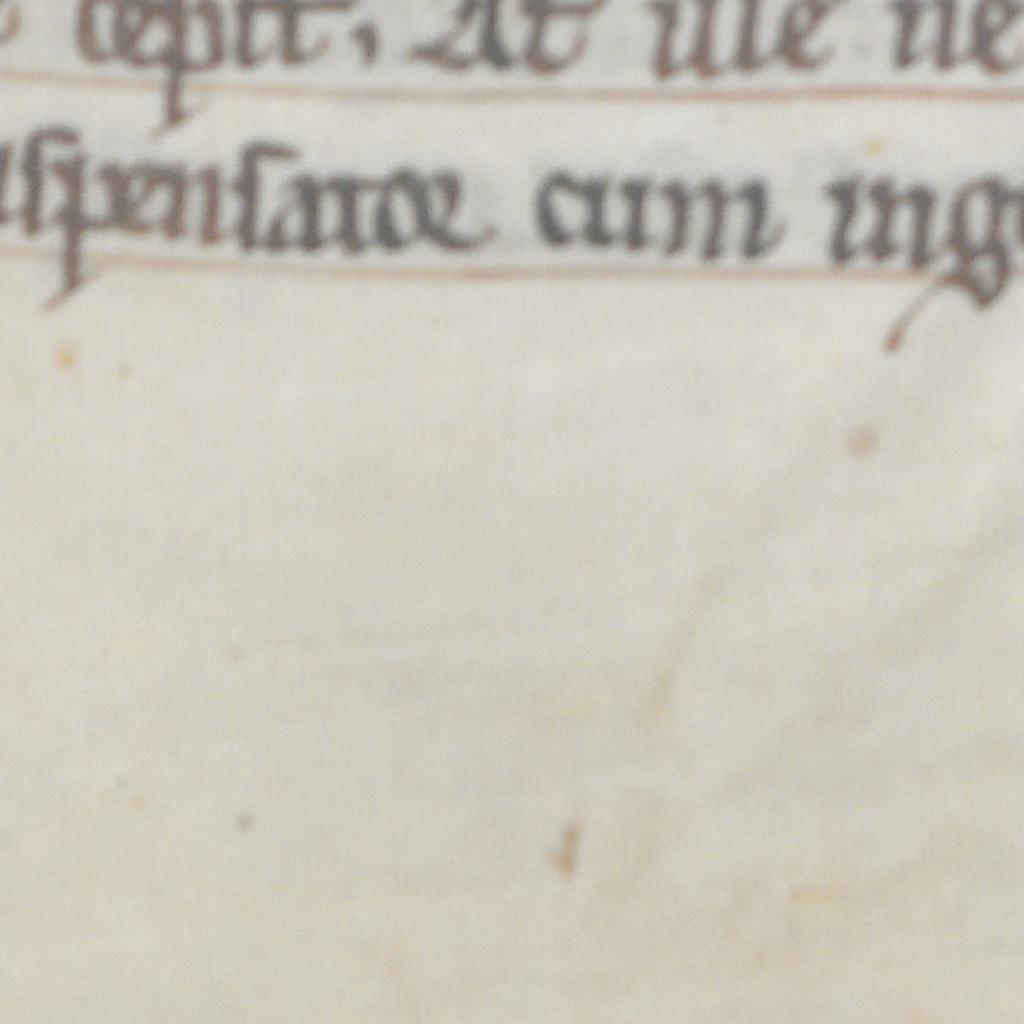 cepit, At ille ne
ispensatoꝛ cum ing